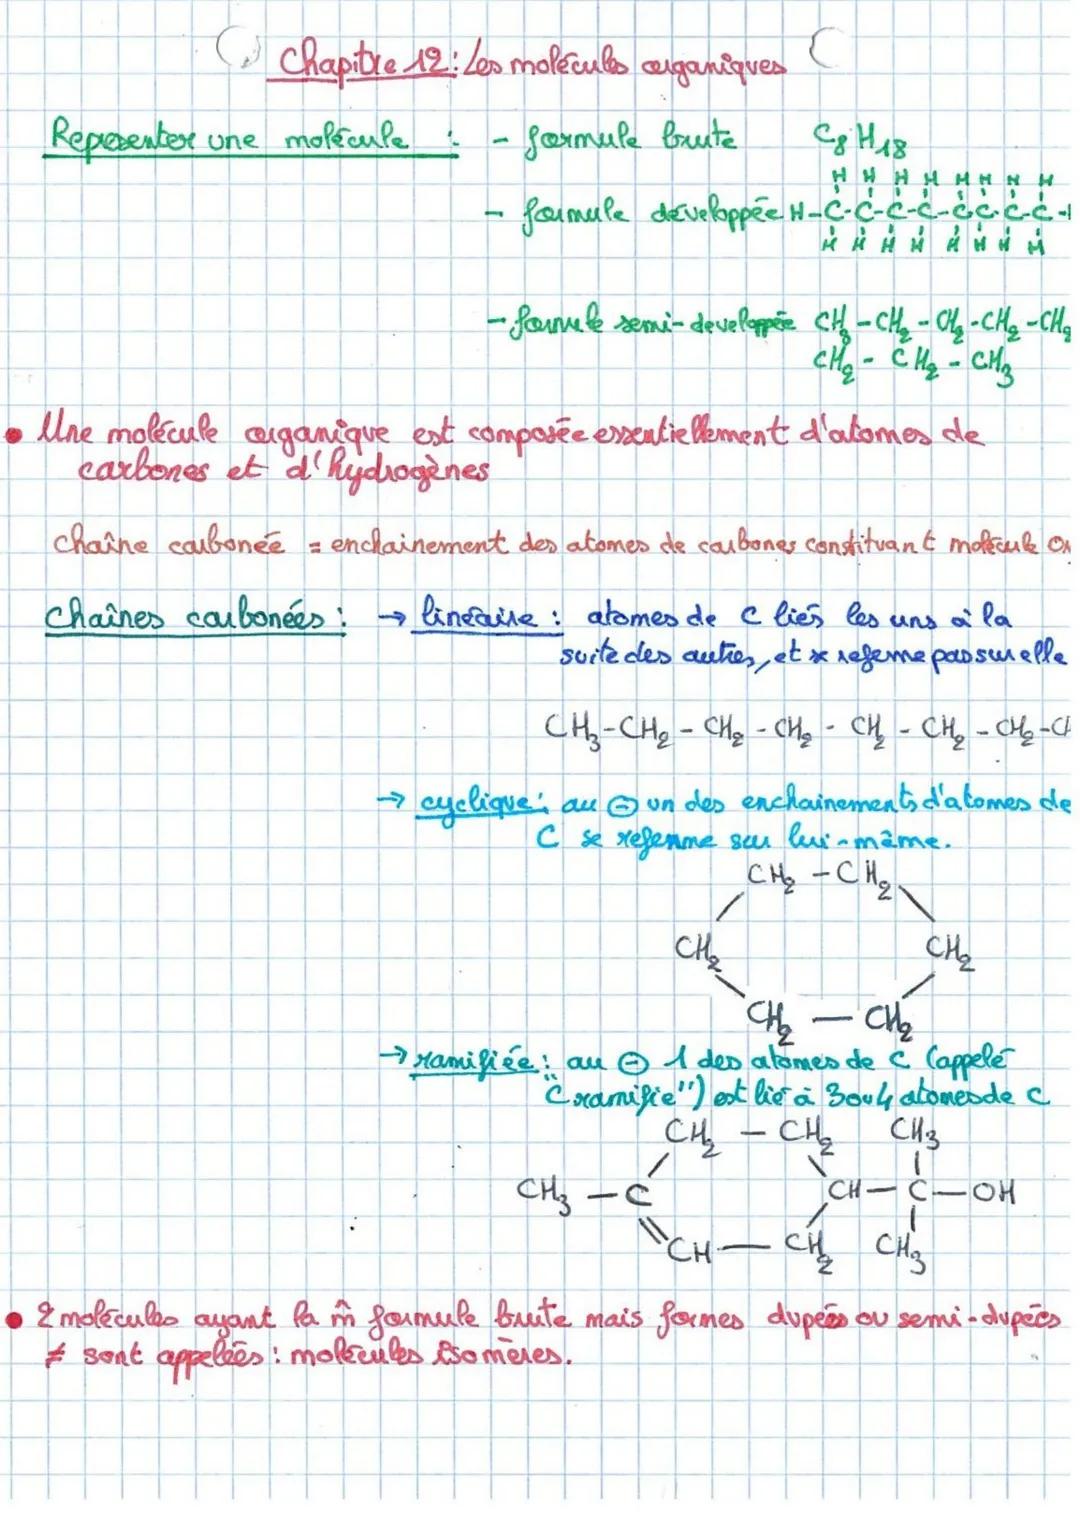 Chapitre 12: Les molécules organiques
Representer une molécule : - formule brute C8H18
H H H H H H H H
- formule développée H-C-C-C-C-C-C-C-C-
H H H H H H H H
- formule semi-developpée CH3-CH2-CH2-CH2-CH2
CH2-CH2-CH3
• Une molécule organique est composée essentiellement d'atomes de
carbones et d'hydrogènes
chaîne carbonée = enchainement des atomes de carbones constituant molécule
chaînes carbonées : → linéaire : atomes de C liés les uns à la
suite des autres, et se referme pas sur elle
CH3-CH2-CH2-CH2-CH2-CH2-CH2-
→ cyclique : au ⊖ un des enchainements d'atomes de
C se referme sur lui-même.
CH2-CH2
CH2 CH2
CH2-CH2
→ ramifiée : au ⊖ 1 des atomes de C (appelé
"C ramifie") est lié à 3 ou 4 atomes de C
CH2-CH2 CH3
CH3-C CH-C-OH
CH-CH2 CH3
• 2 molécules ayant la m̂ formule brute mais formes dvpées ou semi-dvpées
≠ sont appelées : molécules isomères.